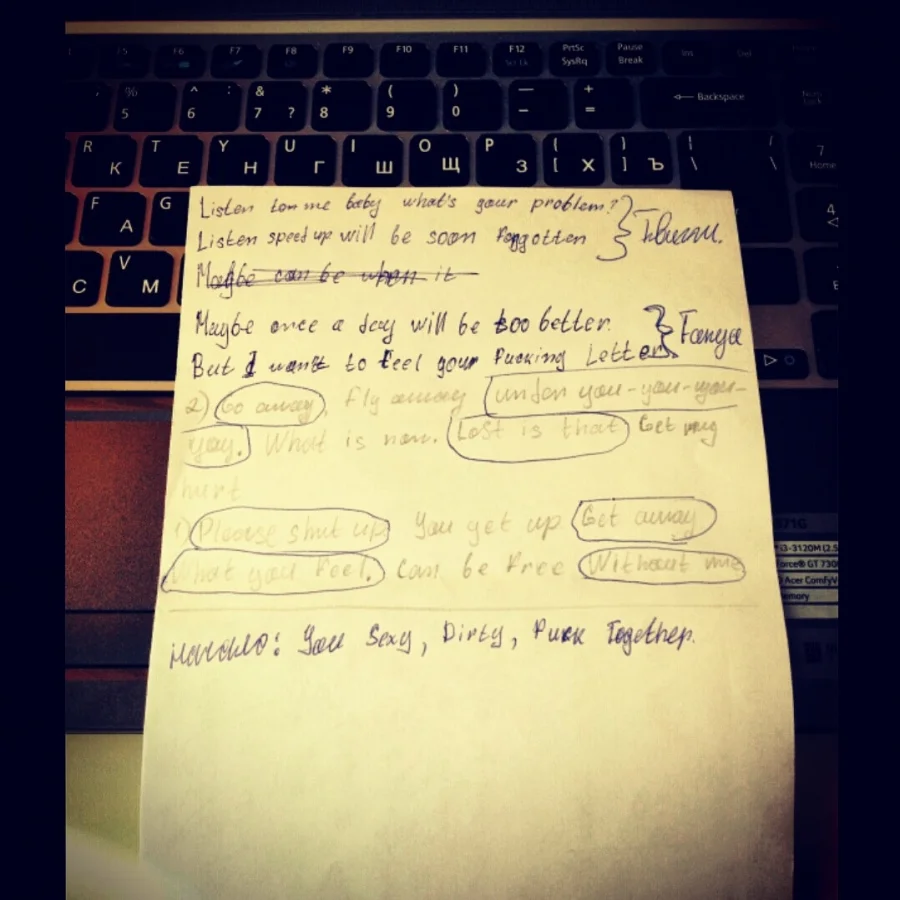 F5 F6 F7 F8 F9 F10 F11 F12 PrtSc SysRq Pause Break Ins Del
% 5 ^ : 6 & 7 ? * 8 ( 9 ) 0 — - + = ← Backspace Num Lock
R К T Е Y Н U Г I Ш O Щ P З { [ Х } ] Ъ | \ / \ 7 Home
F А G 4
С V М
Listen to me baby what's your problem?
Listen speed up will be soon forgotten
Maybe can be when it
Maybe once a day will be too better.
But I want to feel your Fucking Letter. Fanya
2) Go away, Fly away under you-you-you-
you. What is now. Lost is that Get my
hurt
1) Please shut up You get up Get away
What you feel. Can be free Without me
Начало: You Sexy, Dirty, Punk Together.
71G
i3-3120M (2.5
orce® GT 730
Acer ComfyV
emory